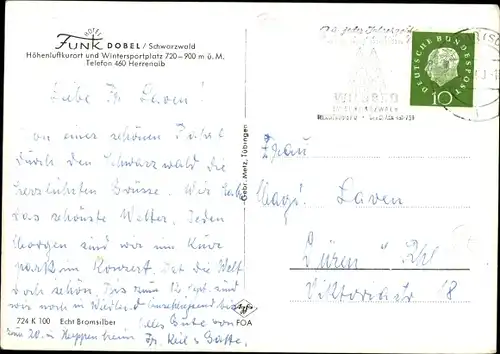 HOTEL
Funk DOBEL / Schwarzwald
Höhenluftkurort und Wintersportplatz 720–900 m ü. M.
Telefon 460 Herrenalb
Liebe Fr. Laven!
Von einer schönen Fahrt
durch den Schwarzwald die
herzlichsten Grüsse. Wir
das schönste Wetter. Jeden
Morgen sind wir im Kur
park im Konzert. Ist die Welt
doch schön. Bis zum 12. Sept. sind
wir noch in
zum 20. in Heppenheim
Alles Gute von
Fr. Keil u Gatte
724 K 100 Echt Bromsilber
Agfa
FOA
Gebr. Metz, Tübingen
Zu jeder Jahreszeit
WILDBAD
IM SCHWARZWALD
DEUTSCHE BUNDESPOST
10
Frau
Magi. Laven
Düren Rhl
Viktoriastr 18